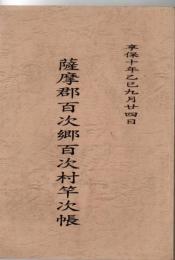 享保十年乙巳九月廿四日
薩摩郡百次郷百次村竿次帳